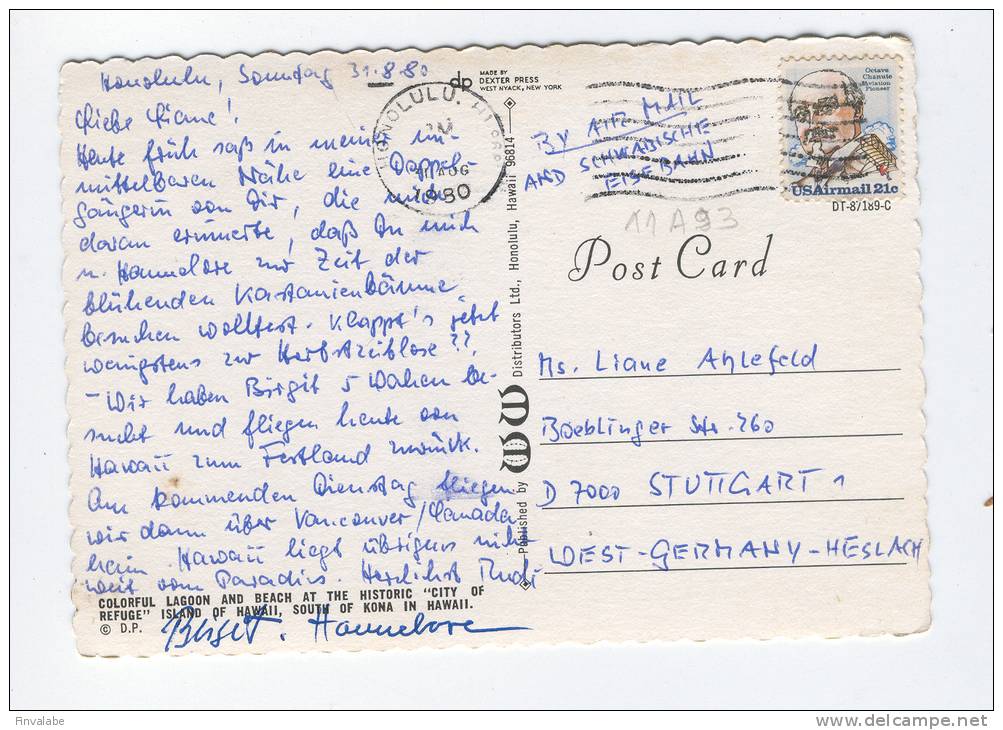 Honolulu, Sonntag 31.8.80
Liebe Liane!
Heute früh saß in meiner un-
mittelbaren Nähe eine Doppel-
gängerin von Dir, die mich
daran erinnerte, daß Du mich
u. Hannelore zur Zeit der
blühenden Kastanienbäume
besuchen wolltest. Klappt's jetzt
wenigstens zur Herbstzeitlose??
- Wir haben Birgit 5 Wochen be-
sucht und fliegen heute von
Hawaii zum Festland zurück.
Am kommenden Dienstag fliegen
wir dann über Vancouver/Canada
heim. Hawaii liegt übrigens nicht
weit vom Paradies. Herzlichst Rudi
Birgit. Hannelore
COLORFUL LAGOON AND BEACH AT THE HISTORIC "CITY OF
REFUGE" ISLAND OF HAWAII, SOUTH OF KONA IN HAWAII.
© D.P.
dp MADE BY
DEXTER PRESS
WEST NYACK, NEW YORK
HONOLULU, HI
PM
31 AUG
1980
Published by WW Distributors Ltd., Honolulu, Hawaii 96814
BY AIR MAIL
AND SCHWÄBISCHE
EISEBAHN
Octave
Chanute
Aviation
Pioneer
USAirmail 21c
DT-87189-C
11A93
Post Card
Ms. Liane Ahlefeld
Boeblinger Str. 260
D 7000 STUTTGART 1
WEST-GERMANY-HESLACH
Finvalabe
www.delcampe.net